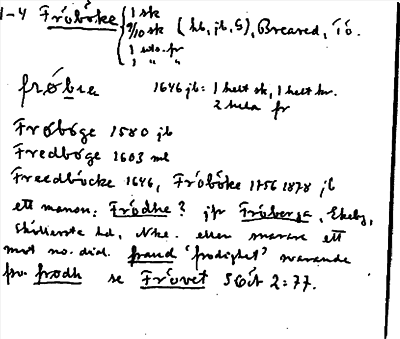 1-4 Fröböke { 1 sk
9/10 sk (hb, jb, S), Breared, Tö.
1 uts. fr
1 " "
frøbie 1646 jb: 1 helt sk, 1 helt kr.
2 hela fr
Frøbøge 1580 jb
Fredbøge 1603 ml
Freedböcke 1646, Fröböke 1756 1878 jb
ett mansn. Frödhe? jfr Fröberga, Ekeby,
hd, Nke. eller snarare ett
mot no. dial. fraud 'frodighet' svarande
fsv. frødh se Frövet SOÄ 2:77.